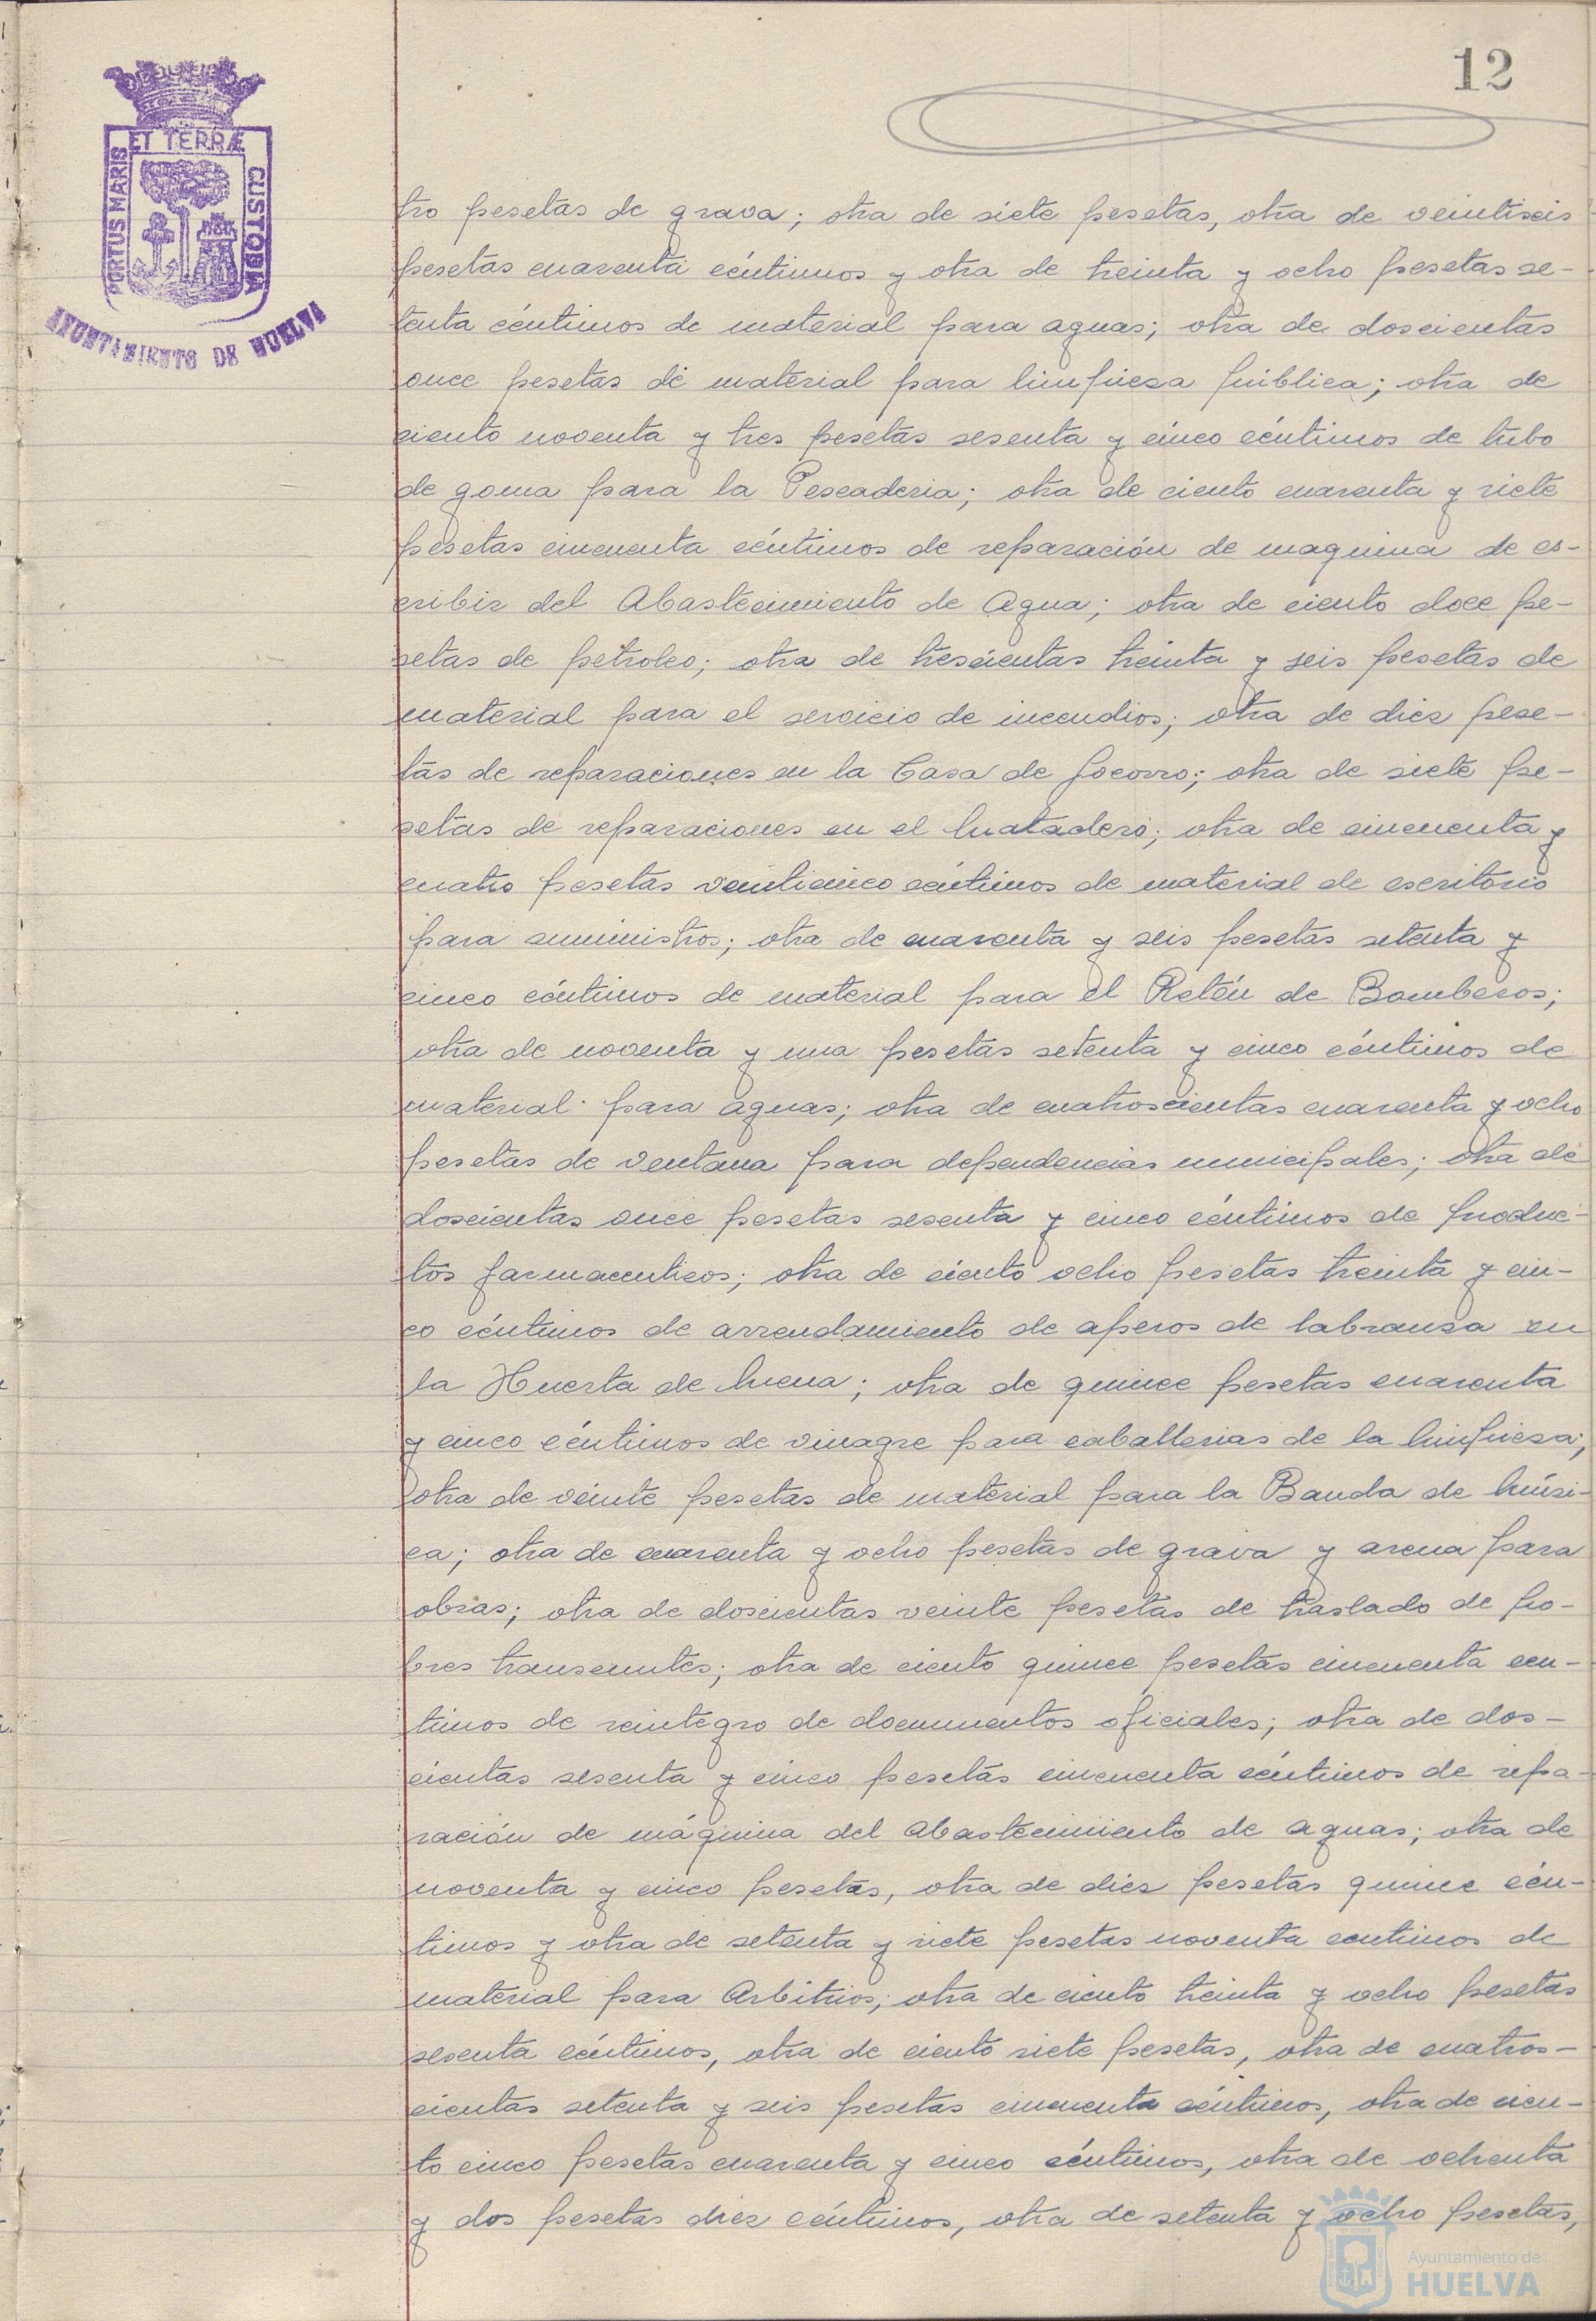 12
ET TERRÆ
PORTUS MARIS
CUSTODIA
AYUNTAMIENTO DE HUELVA
tro pesetas de grava; otra de siete pesetas, otra de veintiseis
pesetas cuarenta céntimos y otra de treinta y ocho pesetas se-
tenta céntimos de material para aguas; otra de doscientas
once pesetas de material para limpieza pública; otra de
ciento noventa y tres pesetas sesenta y cinco céntimos de tubo
de goma para la Pescaderia; otra de ciento cuarenta y siete
pesetas cincuenta céntimos de reparación de maquina de es-
cribir del Abastecimiento de Agua; otra de ciento doce pe-
setas de petroleo; otra de trescientas treinta y seis pesetas de
material para el servicio de incendios; otra de diez pese-
tas de reparaciones en la Casa de Socorro; otra de siete pe-
setas de reparaciones en el Matadero; otra de cincuenta y
cuatro pesetas veinticinco céntimos de material de escritorio
para suministros; otra de cuarenta y seis pesetas setenta y
cinco céntimos de material para el Retén de Bomberos;
otra de noventa y una pesetas setenta y cinco céntimos de
material para aguas; otra de cuatroscientas cuarenta y ocho
pesetas de ventana para dependencias municipales; otra de
doscientas once pesetas sesenta y cinco céntimos de produc-
tos farmaceuticos; otra de ciento ocho pesetas treinta y cin-
co céntimos de arrendamiento de aperos de labranza en
la Huerta de Mena; otra de quince pesetas cuarenta
y cinco céntimos de vinagre para caballerias de la limpieza;
otra de veinte pesetas de material para la Banda de Músi-
ca; otra de cuarenta y ocho pesetas de grava y arena para
obras; otra de doscientas veinte pesetas de traslado de po-
bres transeuntes; otra de ciento quince pesetas cincuenta cen-
timos de reintegro de documentos oficiales; otra de dos-
cientas sesenta y cinco pesetas cincuenta céntimos de repa-
ración de máquina del Abastecimiento de Aguas; otra de
noventa y cinco pesetas, otra de diez pesetas quince cén-
timos y otra de setenta y siete pesetas noventa centimos de
material para Arbitrios; otra de ciento treinta y ocho pesetas
sesenta céntimos, otra de ciento siete pesetas, otra de cuatros-
cientas setenta y seis pesetas cincuenta céntimos, otra de cien-
to cinco pesetas cuarenta y cinco céntimos, otra de ochenta
y dos pesetas diez céntimos, otra de setenta y ocho pesetas,
Ayuntamiento de
HUELVA